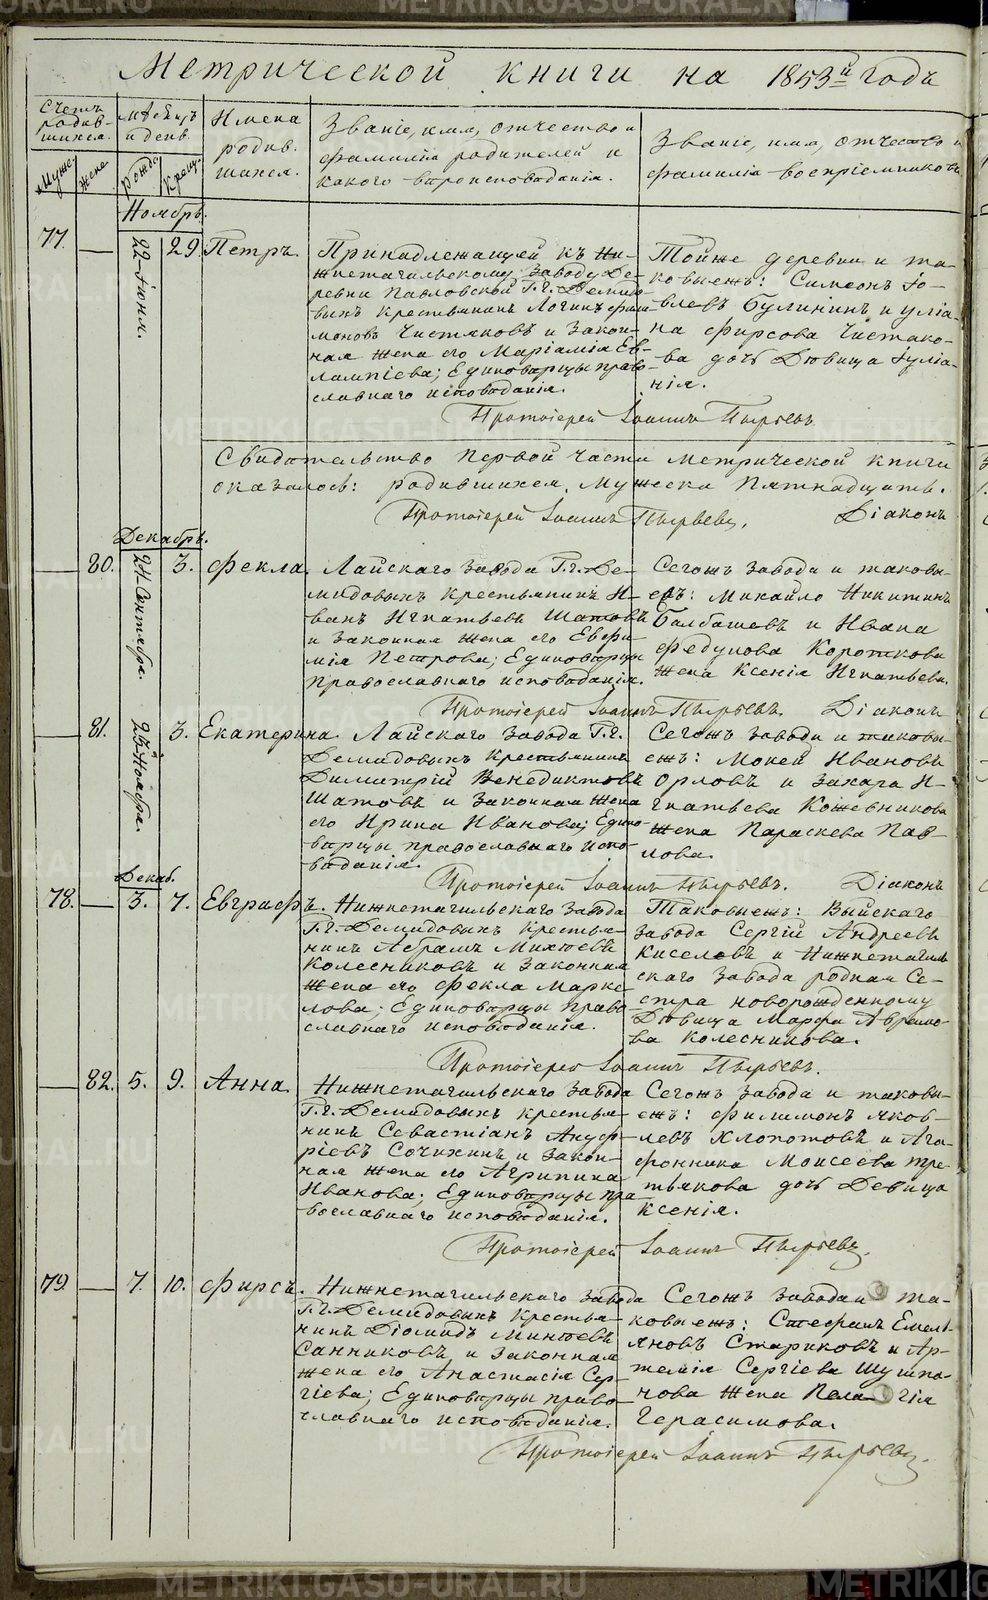 Метрической книги на 1853й годъ
Счетъ родив-шихся.
Муже.
Жене
Мѣсяцъ и день.
Рожд.
Крещ.
Имена родив.шихся.
Званіе, имя, отчество и
фамилія родителей и
какого вѣроисповѣданія.
Званіе, имя, отчество и
фамилія воспріемниковъ
Ноябрь.
77. — 22 Іюня. 29. Петръ.
Принадлежащей къ Ни-
жнетагильскому заводу де-
ревни Павловской Г.г. Демидо-
выхъ крестьянинъ Логинъ
Чистяковъ и закон-
ная жена его Маріамія Ев-
лампіева; Единовѣрцы право-
славнаго исповѣданія.
Тойже деревни и та-
ковыежъ: Симеонъ Іо-
влевъ Булининъ и уліа-
на фирсова Чистяко-
ва дочь Дѣвица Іуліа-
нія.
Протоіерей Іоаннъ Пырьевъ
Свидѣтельство первой части метрической книги
оказалось: родившихся, Мужеска Пятнадцать.
Протоіерей Іоаннъ Пырьевъ. Діаконъ
Декабрь.
— 80. 24 Сентября. 3. Фекла.
Лайскаго завода Г.г. Де-
мидовыхъ крестьянинъ И-
ванъ Игнатьевъ Шатовъ
и законная жена его Евфи-
мія Петрова; Единовѣрцы
Православнаго исповѣданія.
Сегожъ завода и таковы-
ежъ: Михайло Никитинъ
Балбашевъ и Ивана
Федулова Короткова
жена Ксенія Игнатьева.
Протоіерей Іоаннъ Пырьевъ. Діаконъ
— 81. 23 Ноября. 3. Екатерина.
Лайскаго завода Г.г.
Демидовыхъ крестьянинъ
Димитрій Венедиктовъ
Шатовъ и законная жена
его Ирина Иванова; Едино-
вѣрцы православнаго испо-
вѣданія.
Сегожъ завода и таковы-
ежъ: Мокей Ивановъ
Орловъ и Захара И-
гнатьева Кожевникова
жена Параскева Пав-
лова.
Протоіерей Іоаннъ Пырьевъ. Діаконъ
Декаб.
78. — 3. 7. Евграфъ.
Нижнетагильскаго завода
Г.г. Демидовыхъ крестья-
нинъ Абрамъ Михѣевъ
Колесниковъ и законная
жена его Фекла Марке-
лова; Единовѣрцы право-
славнаго исповѣданія.
Таковыежъ: Выйскаго
завода Сергій Андреевъ
Киселовъ и Нижнетагиль-
скаго завода родная Се-
стра новорожденному
Дѣвица Марфа Аврамо-
ва Колесникова.
Протоіерей Іоаннъ Пырьевъ.
— 82. 5. 9. Анна.
Нижнетагильскаго завода
Г.г. Демидовыхъ крестья-
нинъ Севастіанъ Анофріевъ
Сочихинъ и закон-
ная жена его Агрипина
Иванова; Единовѣрцы пра-
вославнаго исповѣданія.
Сегожъ завода и таковы-
ежъ: Филимонъ Яков-
левъ Хлопотовъ и Ага-
фонника Моисеева Тре-
тьякова дочь Дѣвица
Ксенія.
Протоіерей Іоаннъ Пырьевъ.
79. — 7. 10. Фирсъ.
Нижнетагильскаго завода
Г.г. Демидовыхъ крестья-
нинъ Діомидъ Минѣевъ
Санниковъ и законная
жена его Анастасія Сер-
гіева; Единовѣрцы право-
славнаго исповѣданія.
Сегожъ завода и та-
ковыежъ: Стефанъ Емель-
яновъ Стариковъ и Ар-
темія Сергіева Шушпа-
нова жена Пелагія
Герасимова.
Протоіерей Іоаннъ Пырьевъ.
METRIKI.GASO-URAL.RU